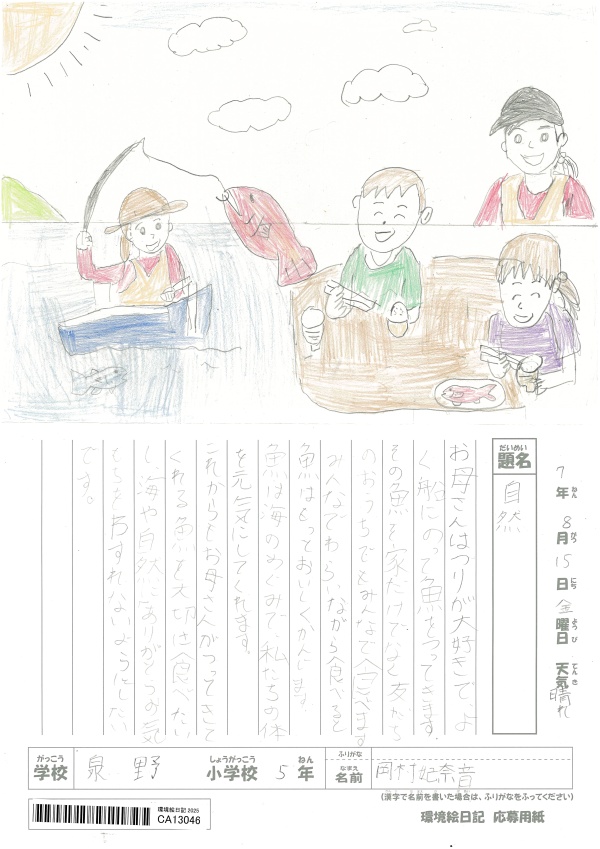 7年8月15日金曜日 天気晴れ
ねん がつ にち ようび てんき
だいめい
題名
自然
お母さんはつりが大好きで、よ
く船にのって魚をつってきます。
その魚を家だけでなく友だち
のおうちでもみんなで食べます
みんなでわらいながら食べると
魚はもっとおいしくかんじます。
魚は海のめぐみで、私たちの体
を元気にしてくれます。
これからもお母さんがつってきて
くれる魚を大切に食べたい
し、海や自然にありがとうの気
もちをわすれないようにしたい
です。
がっこう
学校
泉野
しょうがっこう
小学校
5
ねん
年
ふりがな
なまえ
名前
岡村妃奈音
(漢字で名前を書いた場合は、ふりがなをふってください)
環境絵日記 2025
CA13046
環境絵日記 応募用紙